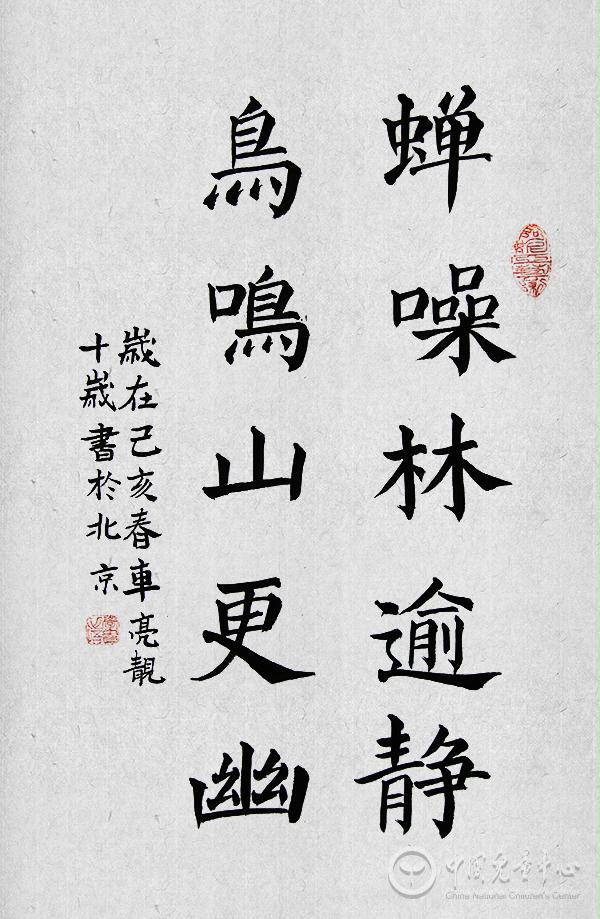 蝉噪林逾静
鳥鳴山更幽
歲在己亥春車亮靚
十歲書於北京
中国儿童中心
China National Children's Center